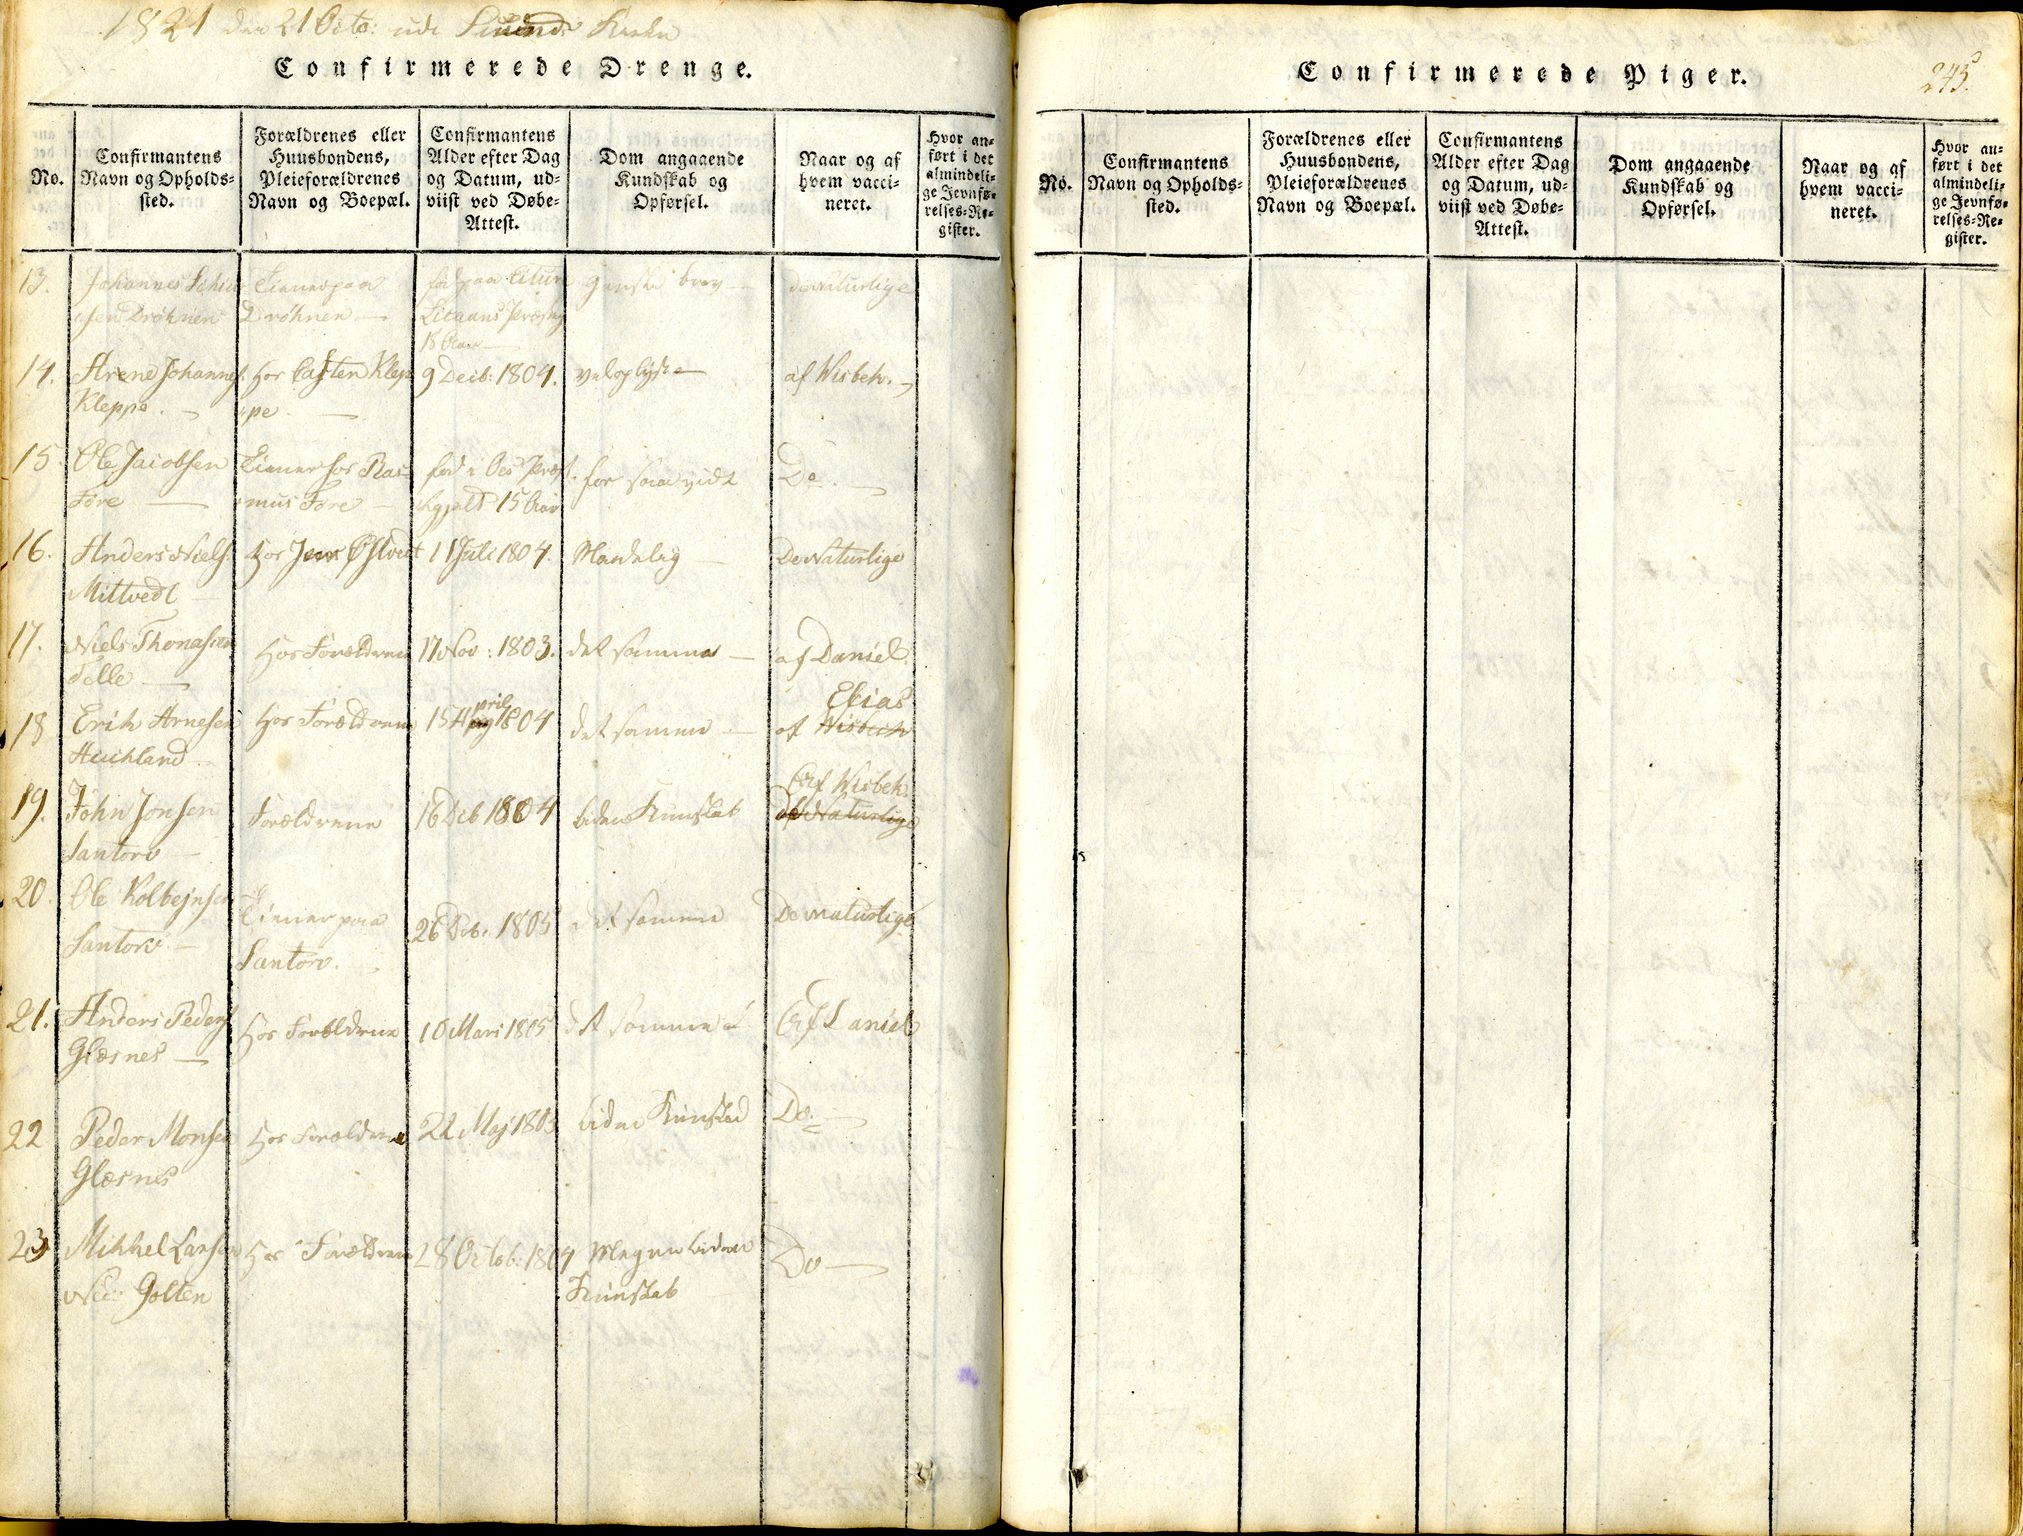 1821 den 21 Octo: udi Sunds Kirke
Confirmerede Drenge.
No.
Confirmantens
Navn og Opholds-
sted.
Forældrenes eller
Huusbondens,
Pleieforældrenes
Navn og Boepæl.
Confirmantens
Alder efter Dag
og Datum, ud-
viist ved Døbe-
Attest.
Dom angaaende
Kundskab og
Opførsel.
Naar og af
hvem vacci-
neret.
Hvor an-
ført i det
almindeli-
ge Jevnfø-
relses-Re-
gister.
13. Johannes
Drøhnen
Tiener paa
Drøhnen
15 Aar
ganske brav
de naturlige
14. Arend Johannes.
Kleppe.
hos Casten Klep
pe.
9 Decb: 1804.
veloplyst
af Wisbeh.
15 Ole Jacobsen
Føre
Tiener hos Ras
mus Føre
fød i Oes Præst
15 Aar
for saa vidt
Do.
16. Anders Niels.
Mittvedt
hos
11 Juli 1804.
Maadelig
De Naturlige
17. Niels Thomasen
Telle
hos Forældrene
17 Nov: 1803.
det samme
af Daniel
Elias
18 Erik Arnesen
hos Forældrene
pril
15 1804
det samme
af Wisbech
19. John Jonsen
Santorv
Forældrene
16 Deb 1804
liden Kunskab
Af Wisbeh.
De Naturlige
20. Ole Kolbejnsen
Santorv
Tiener paa
Santorv.
26 1805
det samme
De naturlige
21. Anders Peders
Glæsnes
hos Forældrene
10 Mari 1805
det samme
Af Daniel
22 Peder Monsen
Glæsnes
hos Forældrene
22 Maj 1803
liden Kunskab
Do.
23 Mikkel Larsen
Golten
hos Forældrene
28 Octob: 1804
Megen liden
Kunskab
Do
Confirmerede Piger.
245.
No.
Confirmantens
Navn og Opholds-
sted.
Forældrenes eller
Huusbondens,
Pleieforældrenes
Navn og Boepæl.
Confirmantens
Alder efter Dag
og Datum, ud-
viist ved Døbe-
Attest.
Dom angaaende
Kundskab og
Opførsel.
Naar og af
hvem vacci-
neret.
Hvor an-
ført i det
almindeli-
ge Jevnfø-
relses-Re-
gister.